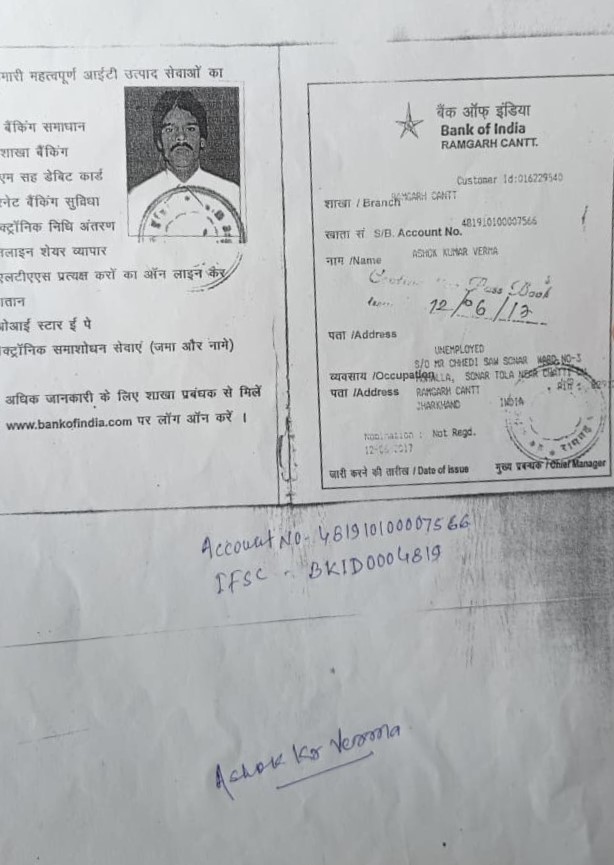 मारी महत्वपूर्ण आईटी उत्पाद सेवाओं का
बैंकिंग समाधान
शाखा बैंकिंग
एन सह डेबिट कार्ड
रनेट बैंकिंग सुविधा
क्ट्रॉनिक निधि अंतरण
नलाइन शेयर व्यापार
एलटीएएस प्रत्यक्ष करों का ऑन लाईन कर
गतान
बीओआई स्टार ई पे
क्ट्रॉनिक समाशोधन सेवाएं (जमा और नामे)
अधिक जानकारी के लिए शाखा प्रबंधक से मिलें
www.bankofindia.com पर लॉग ऑन करें ।
बैंक ऑफ़ इंडिया
Bank of India
RAMGARH CANTT.
Customer Id:016229540
शाखा / Branch RAMGARH CANTT
खाता सं S/B. Account No. 481910100007566
नाम /Name ASHOK KUMAR VERMA
Pass Book
12/06/17
पता /Address
UNEMPLOYED
S/O MR CHHEDI SAW SONAR WARD NO-3
व्यवसाय /Occupation MOHALLA, SONAR TOLA NEAR CHATTI
पता /Address RAMGARH CANTT
JHARKHAND INDIA
Nomination : Not Regd.
12-06-2017
जारी करने की तारीख / Date of issue मुख्य प्रबन्धक / Chief Manager
Account No - 481910100007566
IFSC - BKID0004819
Ashok Kr Verma